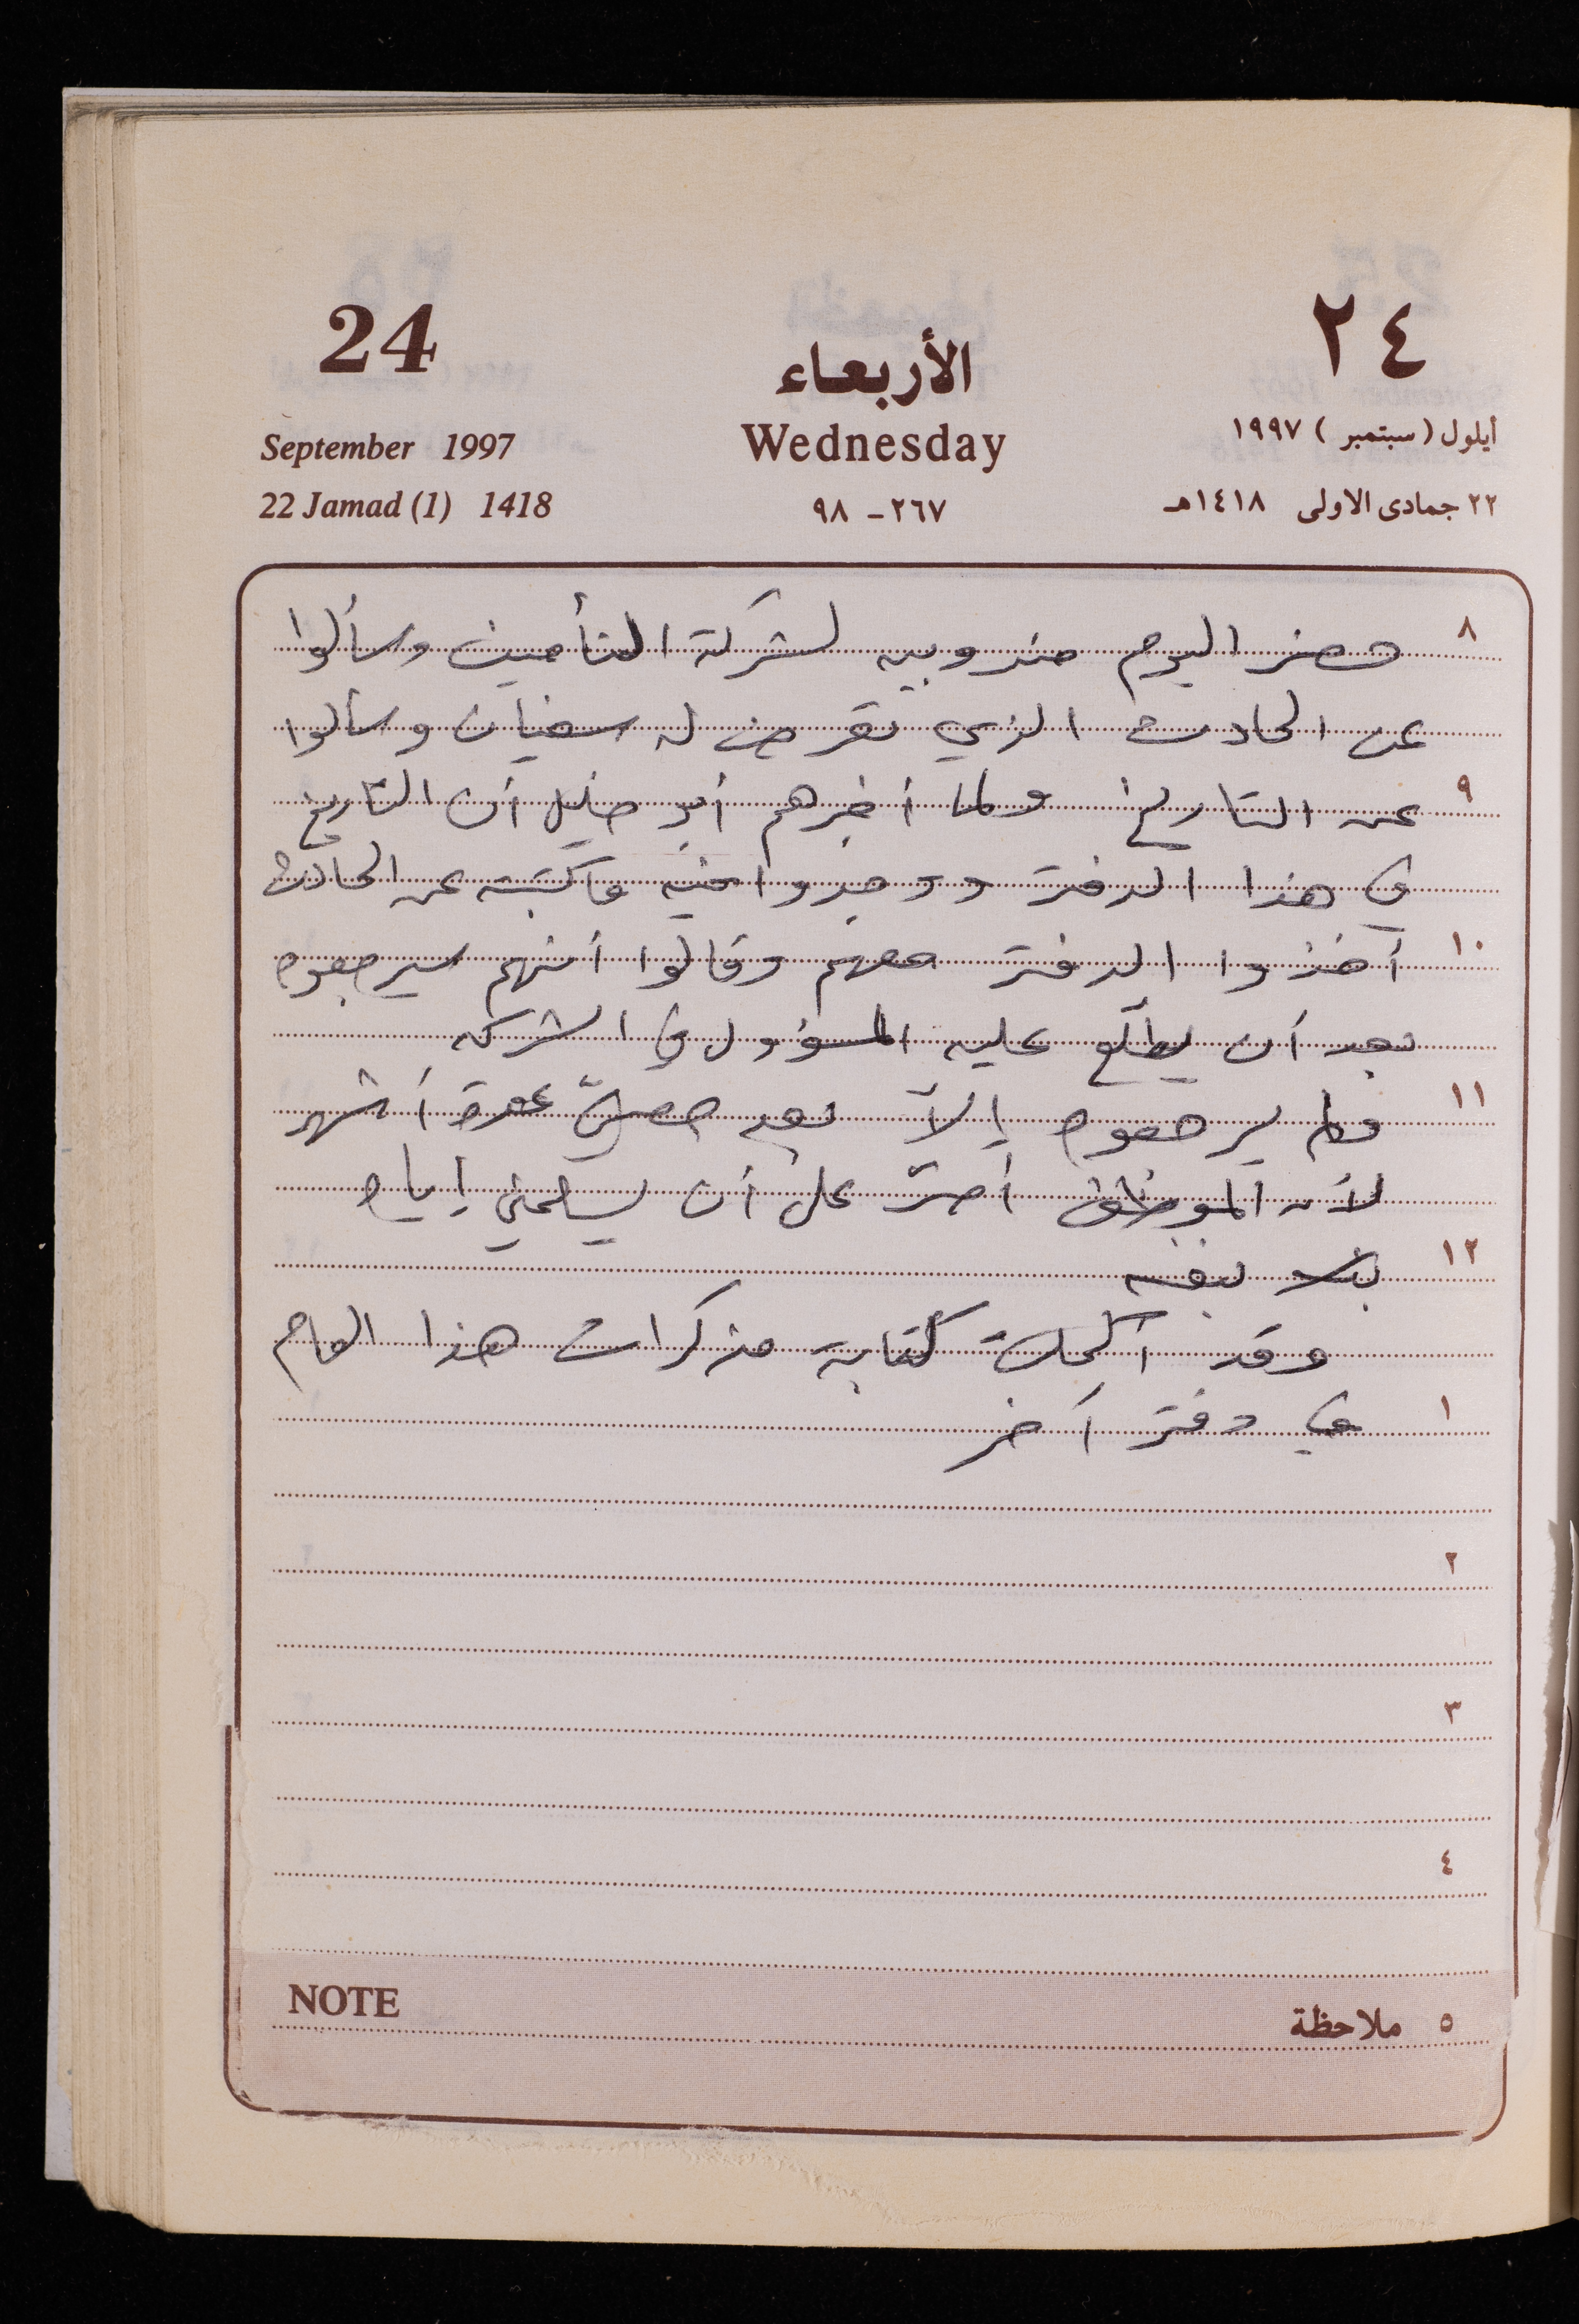 24
الأربعاء
٢٤
September 1997
Wednesday
أيلول (سبتمبر) ١٩٩٧
22 Jamad (1) 1418
٢٦٧ - ٩٨
٢٢ جمادى الاولى ١٤١٨هـ
٨ حضر اليوم مندوبيه لشركة التأمين وسألوا
عن الحادث الذي تعرض له سفيان وسألوا
٩ عن التاريخ ولما أخبرهم أبو خليل أن التاريخ
في هذا الدفتر ووجدوا فيه ما كتبته عن الحادث
١٠ أخذوا الدفتر معهم وقالوا أنهم سيرجعوه
بعد أن يطلع عليه المسؤول في الشركه
١١ ولم يرجعوه إلاّ بعد مضيّ عدة أشهر
لأن الموظف أصرّ على أن يسلمني إياه
١٢ بنفسه
وقد أكملت كتابة مذكرات هذا العام
١ في دفتر آخر
٢
٣
٤
NOTE
٥ ملاحظة